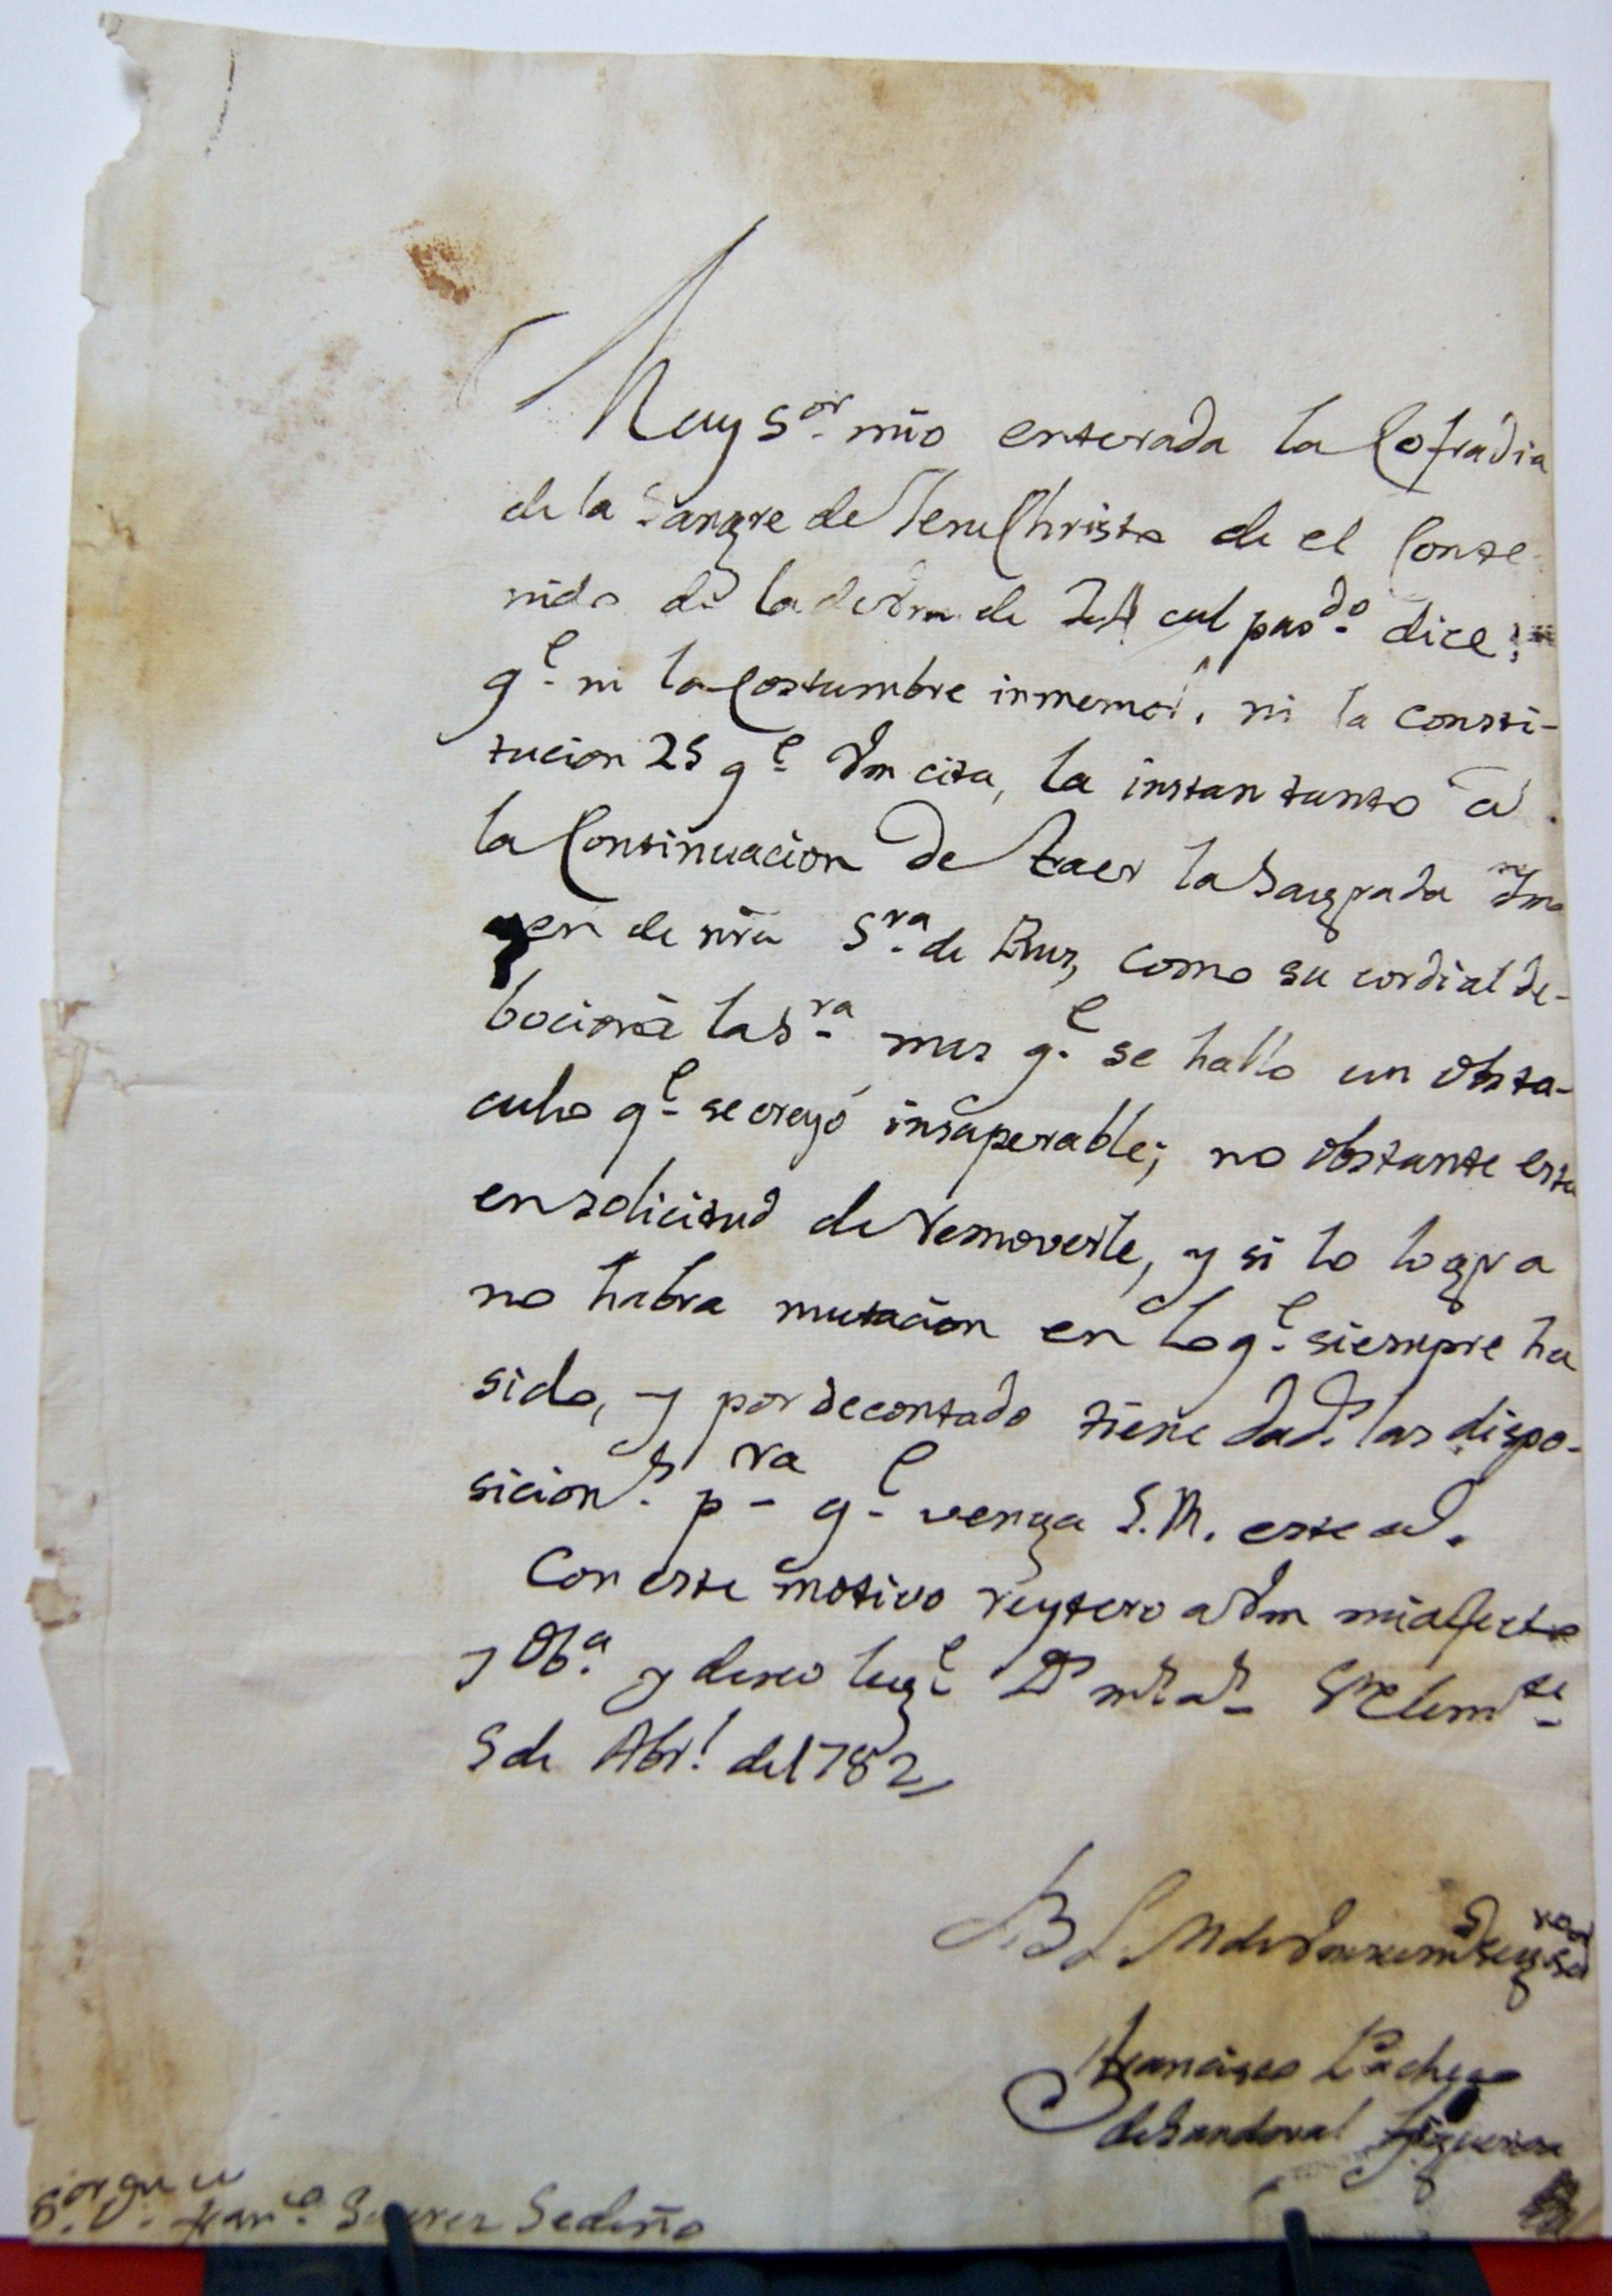 Muy Sor. mio enterada la Cofradia
de la Sangre de JesuChristo de el Conte
nido de la de Vm. de pasdo. dice;
qe. ni la Costumbre inmemorl. ni la consti-
tucion 25 qe. Vm cita, la instan tanto a
la Continuacion de traer la Saugrada Yma
gen de nra Sra. de Rus, como su cordial de-
bocion à la Sra. mas qe. se hallo un obsta-
culo qe. se creyó insuperable; no obstante esta
en solicitud de removerle, y si lo logra
no habra mutacion en lo qe. siempre ha
sido, y por decontado tiene dads. las dispo-
sicions. pra. qe. venga S.M. este
Con este motivo reytero a Vm mi afecto
y Oba. y deseo le gue. Ds. ms. as. Sn Clemte.
5 de Abrl. de 1782
B L M de Vm su segro.
Francisco Pacheco
de Sandoval Figueroa
Sor. Dn. Franco. Suarez Sedeño